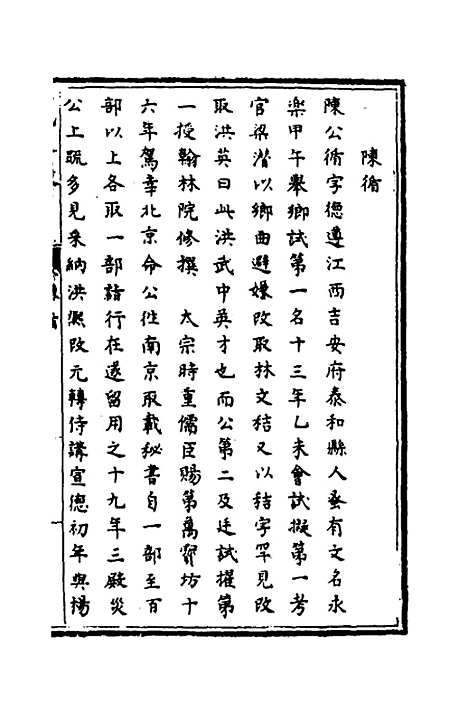 陳循
陳公循字德遵江西吉安府泰和縣人蚤有文名永
樂甲午舉鄉試第一名十三年乙未會試擬第一考
官梁潛以鄉曲避嫌改取林文秸又以秸字罕見改
取洪英曰此洪武中英才也而公第二及廷試擢第
一授翰林院修撰　太宗時重儒臣賜第萬寶坊十
六年駕幸北京命公徃南京取載秘書自一部至百
部以上各取一部詣行在遂留用之十九年三殿災
公上疏多見采納洪熙改元轉侍講宣德初年與楊